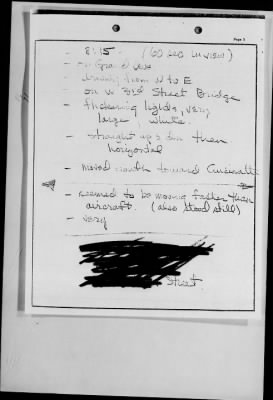 Page 3
- 8:15 - (60 sec in view)
- on Grand Ave
driving from W to E
on W 31st Street Bridge
- flickering lights, very
large, white.
- straight up & dn then
horizontal
- moved north toward
- seemed to be moving faster than
aircraft. (also stood still)
- very
Street